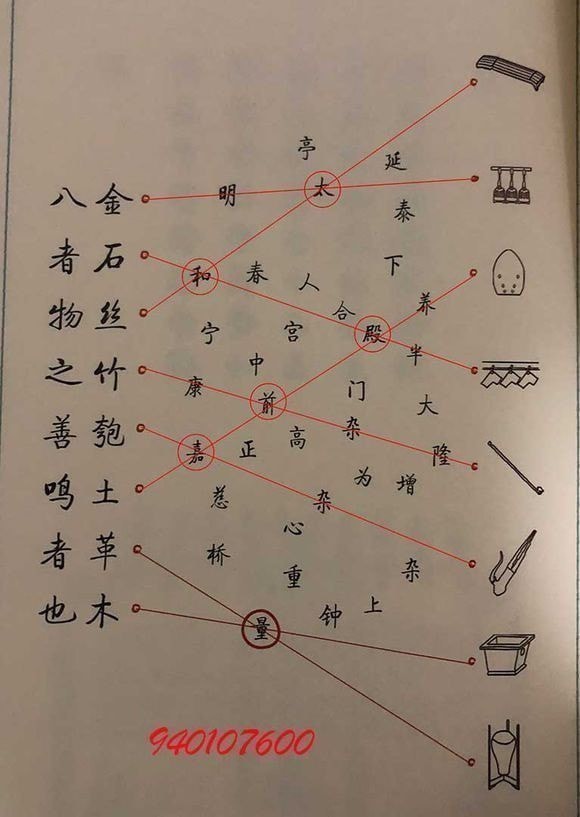 金石丝竹匏土革木
八者物之善鸣者也
亭
延
明
太
泰
下
和
春
人
养
合
宁
宫
殿
半
中
康
前
门
大
杂
嘉
正
高
隆
为
增
慈
杂
心
桥
重
杂
钟
上
量
940107600